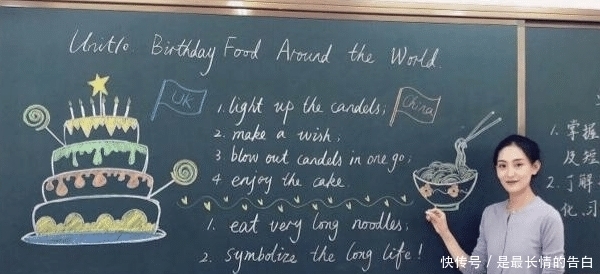 Unit10 Birthday Food Around the World.
UK
1. light up the candels;
China
2. make a wish;
3 blow out candels in one go;
4 enjoy the cake.
1. eat very long noodles;
2. symbolize the long life!
1. 掌握
及短
2. 了解
化、习
快传号／是最长情的告白